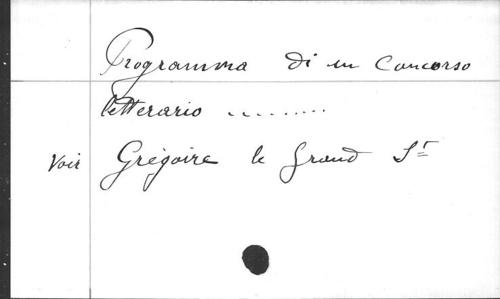 Programma di un Concorso
letterario .........
Voir Grégoire le Grand St